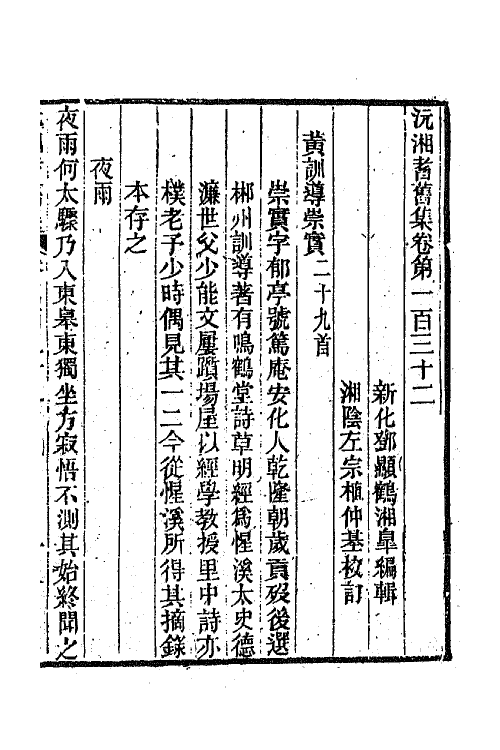 沅湘耆舊集卷第一百三十二
新化鄧顯鶴湘皐編輯
湘陰左宗植仲基校訂
黃訓導崇實二十九首
崇實字郁亭號篤庵安化人乾隆朝歲貢歿後選
郴州訓導著有鳴鶴堂詩草明經爲惺溪太史德
濂世父少能文屢躓場屋以經學敎授里中詩亦
樸老予少時偶見其一二今從惺溪所得其摘錄
本存之
夜雨
夜雨何太驟乃入東皋東獨坐方寂悟不測其始終聞之